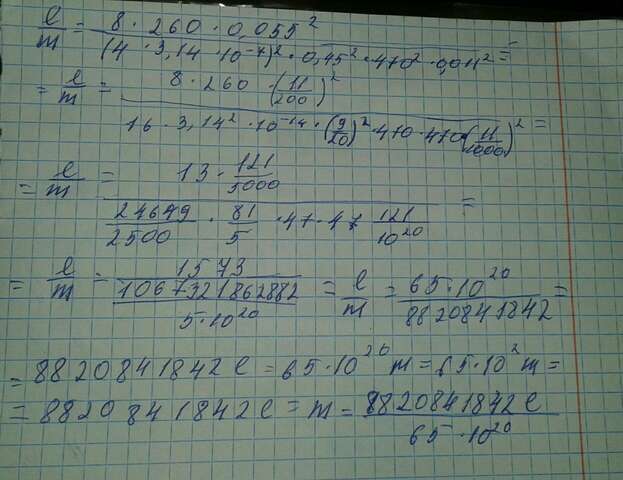 e/m = 8 · 260 · 0,055² / (4 · 3,14 · 10⁻⁷)² · 0,45² · 410² · 0,011² =
= e/m = 8 · 260 · (11/200)² / 16 · 3,14² · 10⁻¹⁴ · (9/20)² · 410 · 410 (11/1000)² =
= e/m = 13 · 121/5000 / 24649/2500 · 81/5 · 41 · 41 121/10²⁰ =
= e/m = 1573 / 1067321862882 / 5·10²⁰ = e/m = 65·10²⁰ / 8820841842 =
= 8820841842 e = 65·10²⁰ m = 65·10² m =
= 8820841842 e = m = 8820841842 e / 65·10²⁰